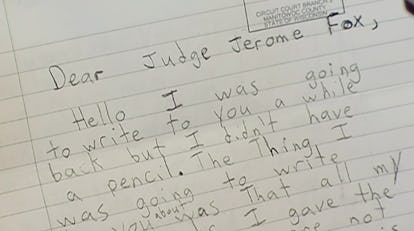 CIRCUIT COURT BRANCH
MANITOWOC COUNTY
STATE OF WISCONSIN
Dear Judge Jerome Fox,
Hello I was going
to write to you a while
back but I didn't have
a pencil. The Thing I
was going to write
you about was That all my
I gave the
not